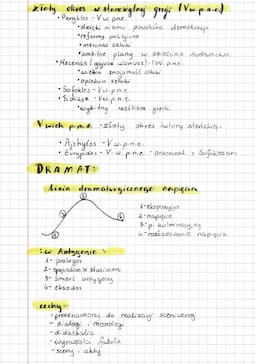 złoty okres w starożytnej grecji (V w.p.n.e.)
• Perykles - V w. pne.
• dzięki niemu powstała demokracja
• reformy polityczne
• mecenas sztuki
• ambitne plany w dziedzinie budownictwa
• Mecenas (Gajusz) - I w. p.n.e.
• wielka znajomość sztuki
• opiekun sztuki
• Sofokles - V w. p.n.e.
• V w. p.n.e.
• wybitny grecki
V wiek p.n.e. - złoty okres kultury ateńskiej.
• Ajschylos - V w.p.n.e.
• Eurypides - V w. p.n.e. - pracował z Sofoklesem
DRAMAT:
linia dramaturgicznego napięcia
1 - ekspozycja
2 - napięcie
3 - p. kulminacyjny
4 - rozładowanie napięcia
1
2
3
4
w Antygonie :
1 - prologos
2 - 
3 - śmierć antygony
4 - eksodos
cechy:
- przeznaczony do realizacji scenicznej
- dialogi i monologi
- didaskalia
- fabuła
- sceny i akty